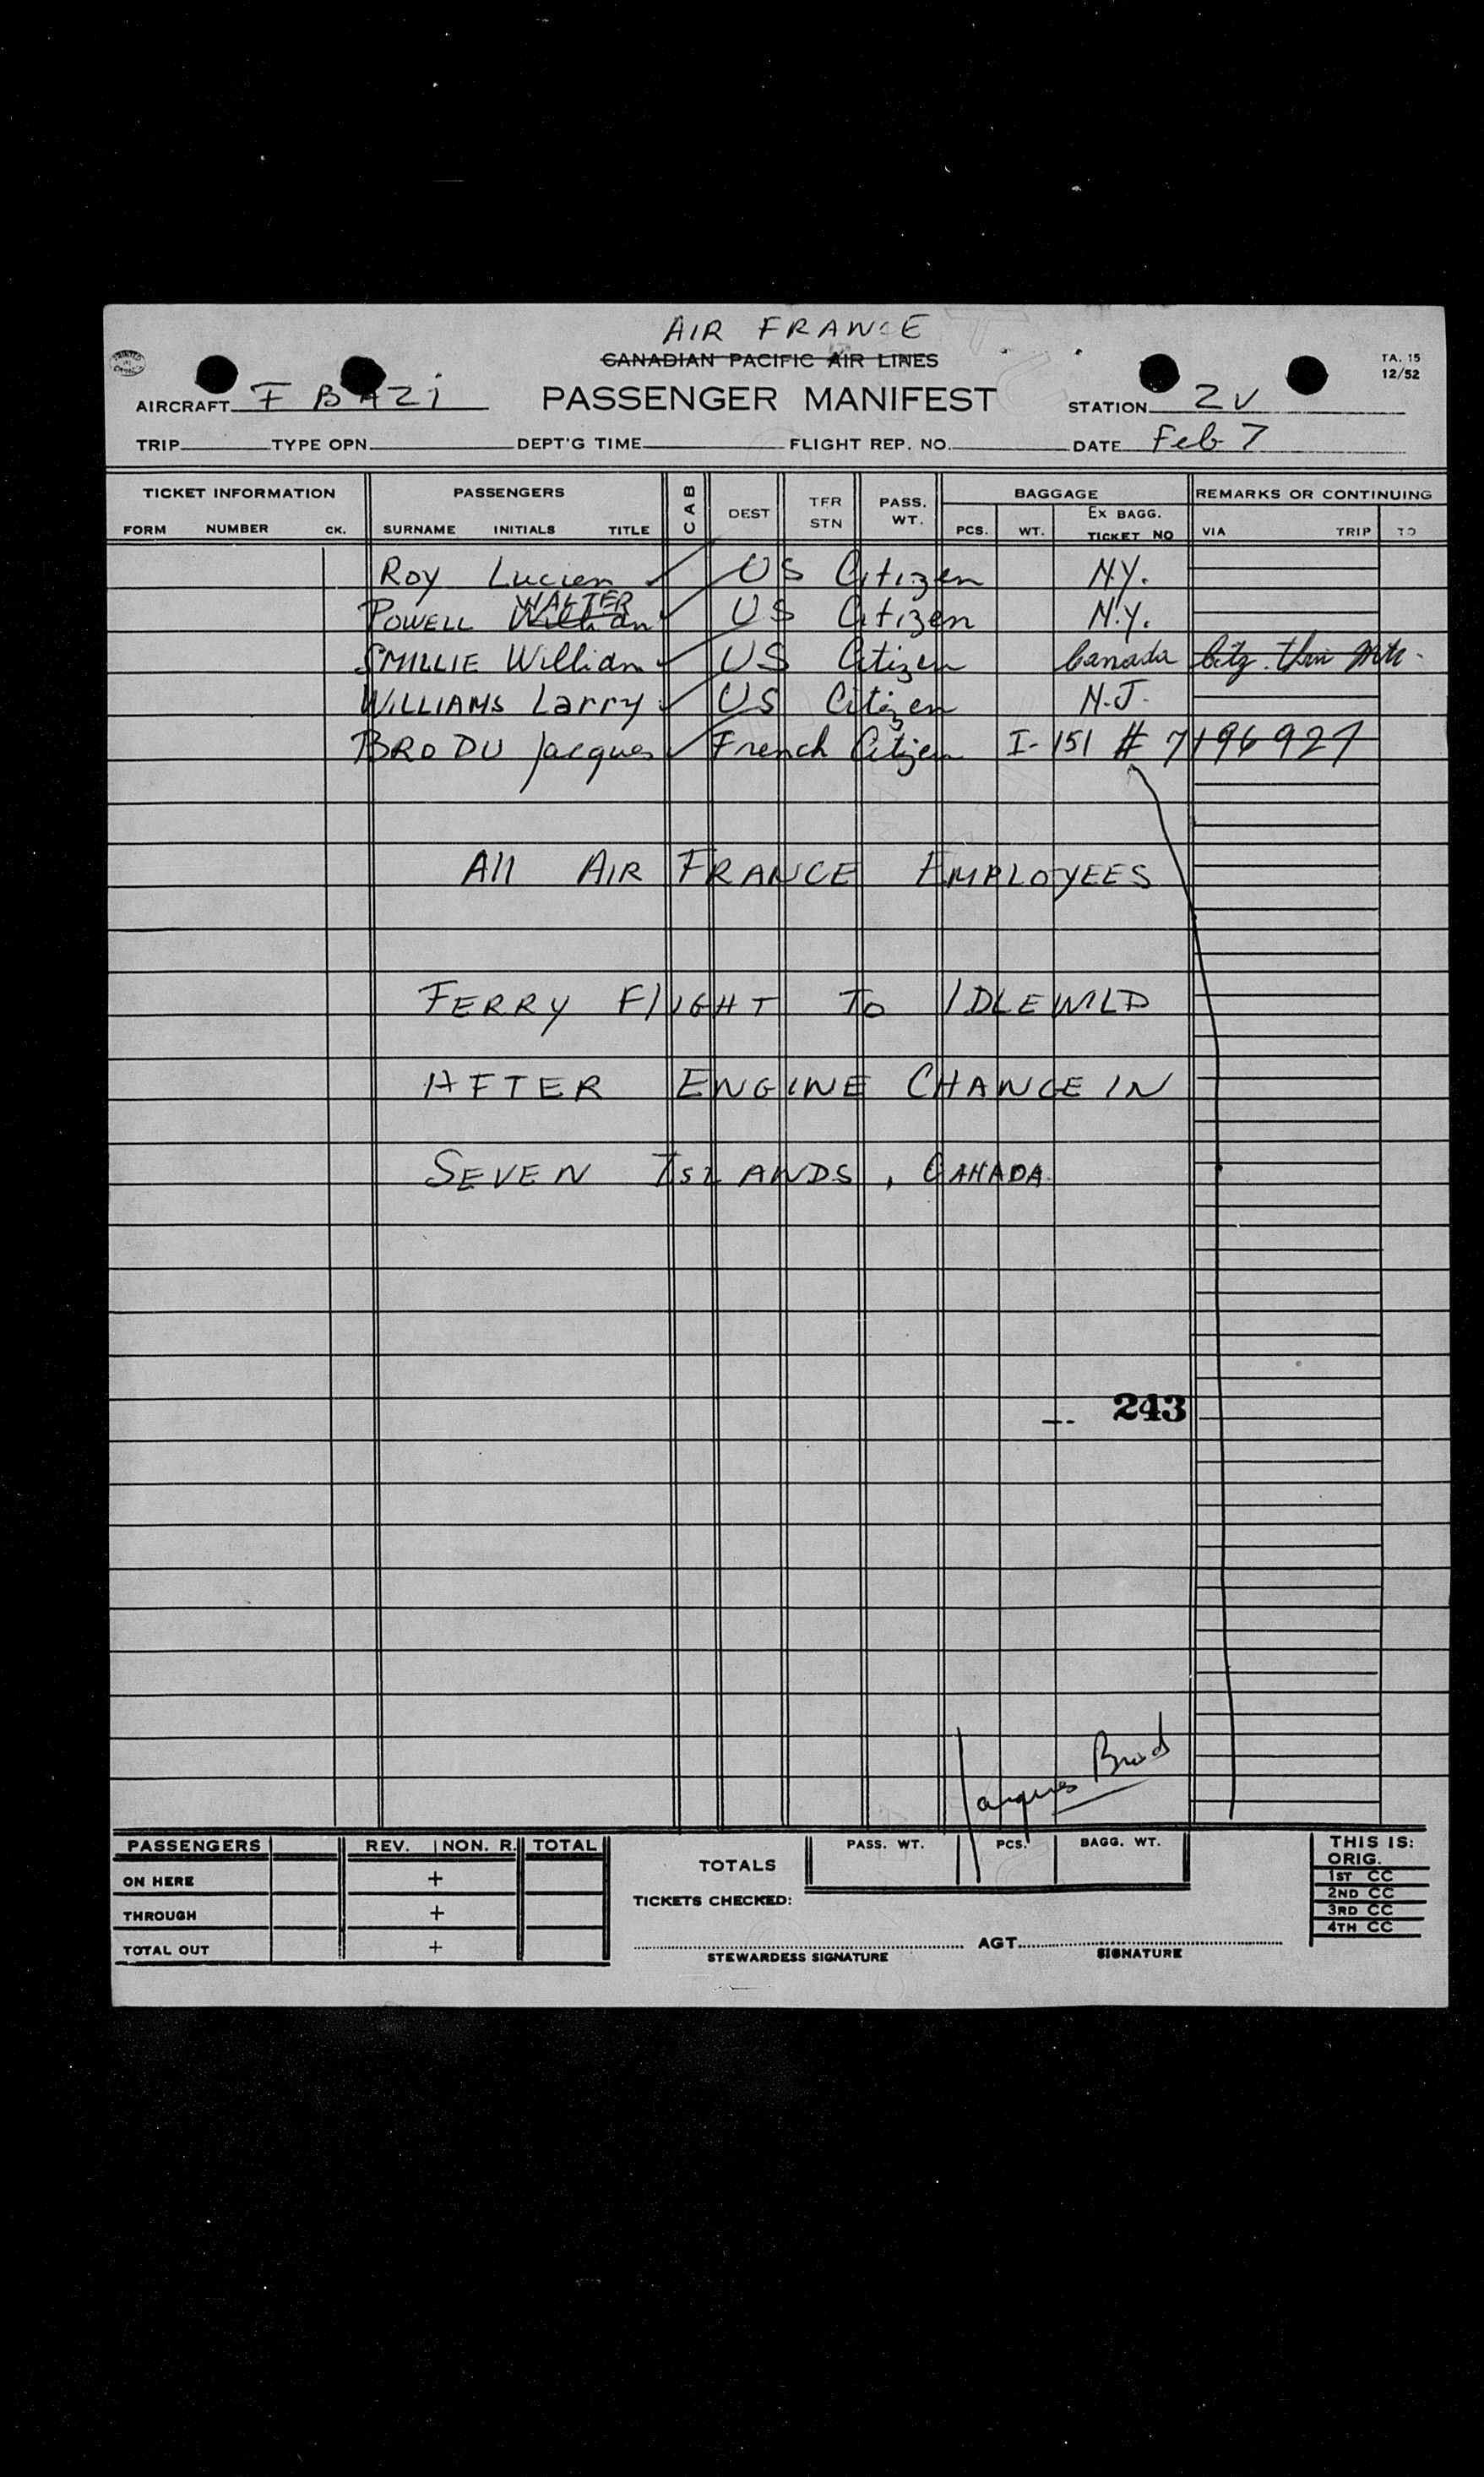 AIR FRANCE
CANADIAN PACIFIC AIR LINES
TA. 15
12/52
AIRCRAFT F BAZi PASSENGER MANIFEST STATION ZV
TRIP TYPE OPN. DEPT'G TIME FLIGHT REP. NO. DATE Feb 7
TICKET INFORMATION PASSENGERS CAB DEST TFR STN PASS. WT. BAGGAGE REMARKS OR CONTINUING
FORM NUMBER CK. SURNAME INITIALS TITLE PCS. WT. Ex BAGG. TICKET NO VIA TRIP TO
ROY Lucien US Citizen N.Y.
WALTER
POWELL William US Citizen N.Y.
SMILLIE William US Citizen Canada Citz.
WILLIAMS Larry US Citizen N.J.
BRODU Jacques French Citizen I-151 # 7196927
All AIR FRANCE EMPLOYEES
FERRY FlIGHT TO IDLEWILD
AFTER ENGINE CHANGE IN
SEVEN ISLANDS, CANADA
243
Jacques Brod
PASSENGERS REV. NON. R. TOTAL
ON HERE +
THROUGH +
TOTAL OUT +
TOTALS PASS. WT. PCS. BAGG. WT.
TICKETS CHECKED:
STEWARDESS SIGNATURE AGT. SIGNATURE
THIS IS:
ORIG.
1ST CC
2ND CC
3RD CC
4TH CC